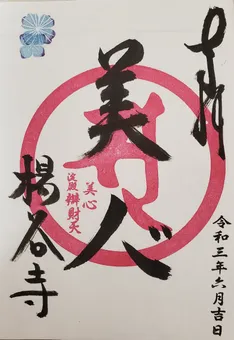 奉拝
美人
美心
淀殿 辨財天
楊谷寺
令和三年六月吉日